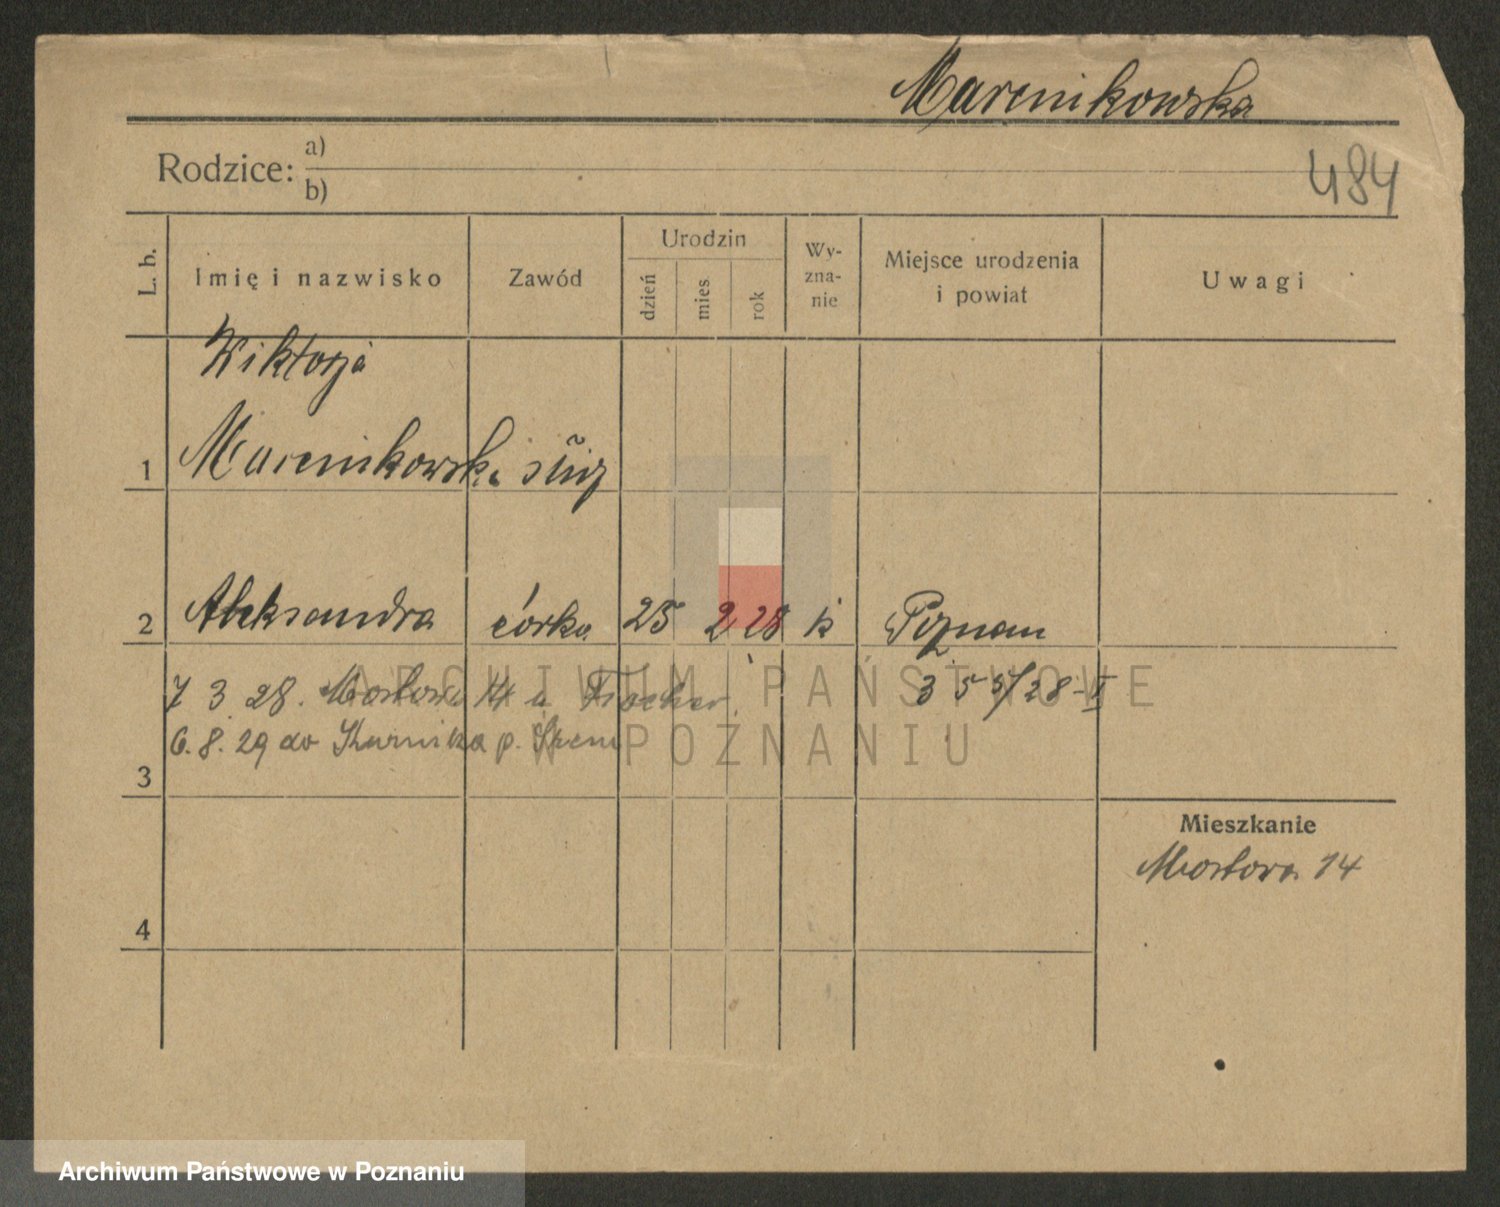 Marcnikowska
484
Rodzice: a)
b)
L. b. Imię i nazwisko Zawód Urodzin dzień mies rok Wy-zna-nie Miejsce urodzenia i powiat Uwagi
Wiktorja
1 Marcnikowska służ
2 Aleksandra córka 25 2 28 k Poznan
7 3 28. Mostowa 14 u 355/28-I
6.8.29 do Kurnika p. Śrem
3
Mieszkanie
Mostowa 14
4
ARCHIWUM PAŃSTWOWE
W POZNANIU
Archiwum Państwowe w Poznaniu